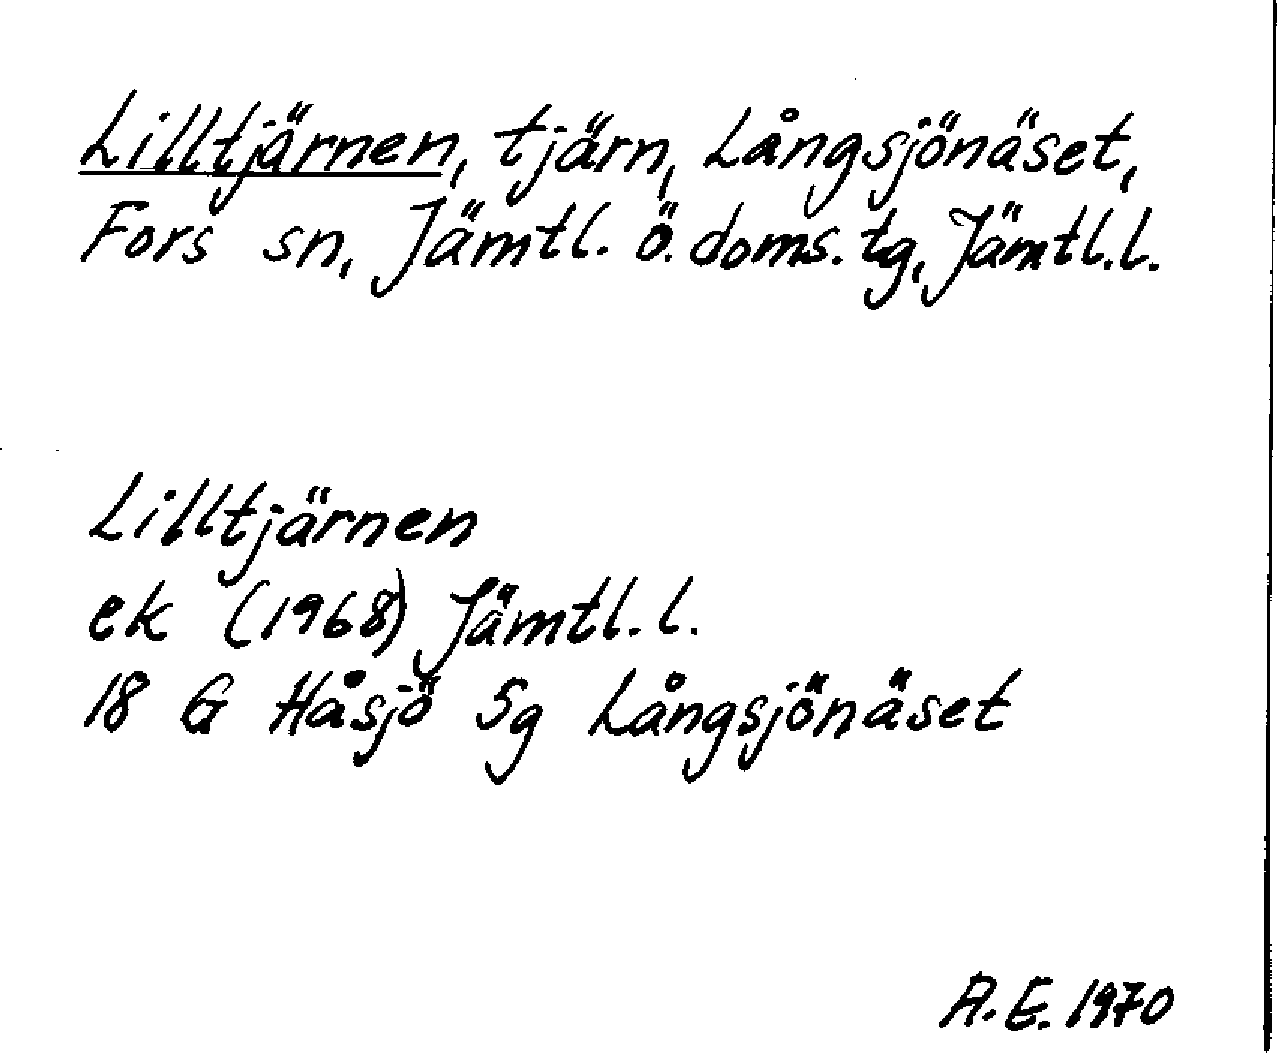 Lilltjärnen, tjärn, Långsjönäset,
Fors sn, Jämtl. Ö. doms. tg, Jämtl. l.
Lilltjärnen
ek (1968) Jämtl. l.
18 G Håsjö 5g Långsjönäset
A. E. 1970